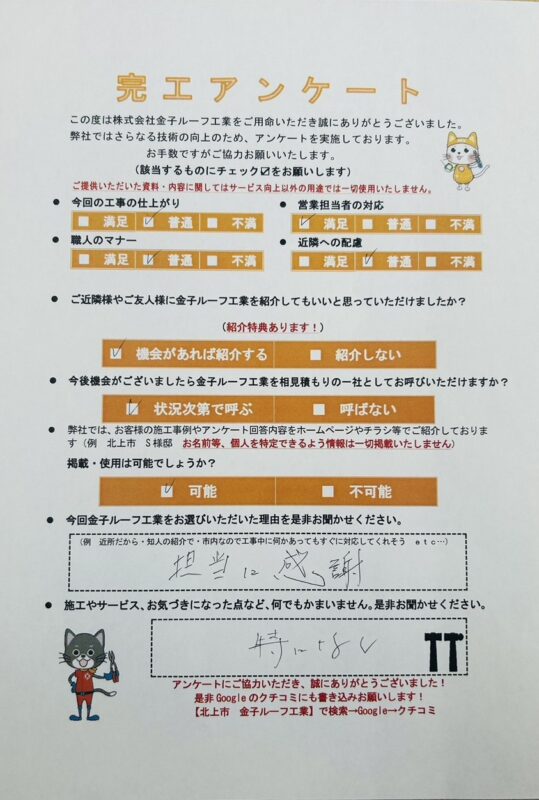 完工アンケート
この度は株式会社金子ルーフ工業をご用命いただき誠にありがとうございました。
弊社ではさらなる技術の向上のため、アンケートを実施しております。
お手数ですがご協力お願いいたします。
(該当するものにチェック☑をお願いします)
ご提供いただいた資料・内容に関してはサービス向上以外の用途では一切使用いたしません。
● 今回の工事の仕上がり
■ 満足 ☑ 普通 ■ 不満
● 営業担当者の対応
☑ 満足 ■ 普通 ■ 不満
● 職人のマナー
■ 満足 ☑ 普通 ■ 不満
● 近隣への配慮
■ 満足 ☑ 普通 ■ 不満
● ご近隣様やご友人様に金子ルーフ工業を紹介してもいいと思っていただけましたか?
(紹介特典あります!)
☑ 機会があれば紹介する ■ 紹介しない
● 今後機会がございましたら金子ルーフ工業を相見積もりの一社としてお呼びいただけますか?
☑ 状況次第で呼ぶ ■ 呼ばない
● 弊社では、お客様の施工事例やアンケート回答内容をホームページやチラシ等でご紹介しておりま
す(例 北上市 S様邸 お名前等、個人を特定できるよう情報は一切掲載いたしません)
掲載・使用は可能でしょうか?
☑ 可能 ■ 不可能
● 今回金子ルーフ工業をお選びいただいた理由を是非お聞かせください。
(例 近所だから・知人の紹介で・市内なので工事中に何かあってもすぐに対応してくれそう etc…)
担当に感謝
● 施工やサービス、お気づきになった点など、何でもかまいません。是非お聞かせください。
特になし
アンケートにご協力いただき、誠にありがとうございました!
是非Googleのクチコミにも書き込みお願いします!
【北上市 金子ルーフ工業】で検索→Google→クチコミ